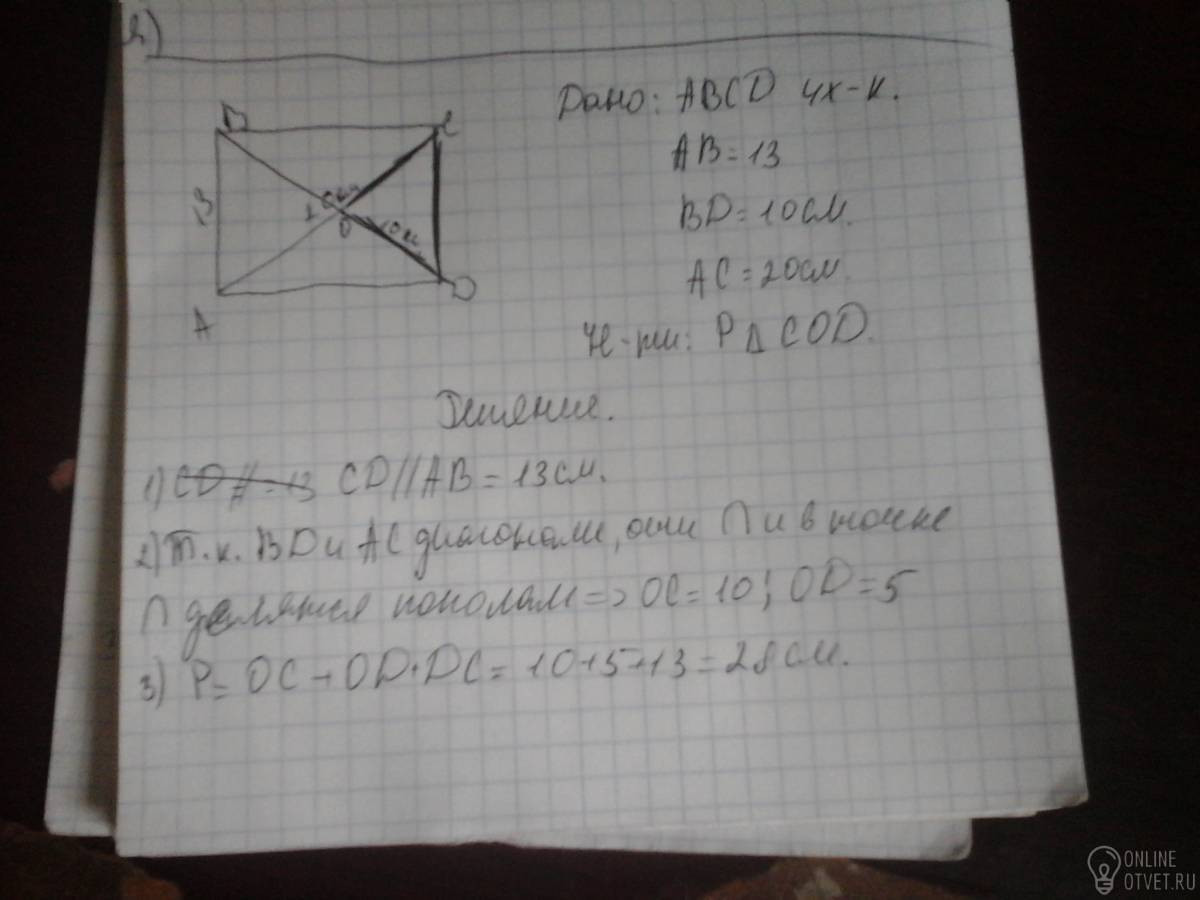 2)
B C
13 20см
O 10см
A D
Дано: ABCD 4х-к.
AB = 13
BD = 10см.
AC = 20см.
Н-ти: P△COD.
Решение.
1) CD//AB = 13см.
2) Т.к. BD и AC диагонали, они ∩ и в точке
∩ делятся пополам => OC = 10; OD = 5
3) P = OC + OD + DC = 10+5+13 = 28см.
ONLINE
OTVET.RU